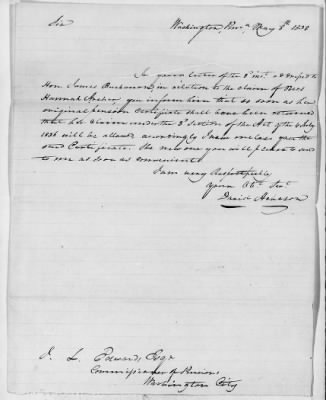 Sir
Washington, Penna May 8th 1838
In your letter of the 2d inst. addressed to
Hon. James Buchanan, in relation to the claim of Mrs
Hannah Archer you inform him that as soon as her
original pension Certificate shall have been returned
that her claim under the 3d Section of the Act of the 4 July
1836 will be allowed accordingly I now enclose you the
said Certificate. The new one you will please to send
to me as soon as convenient.
I am very Respectfully
Your Obt. Sert.
David Acheson
J. L. Edwards Esqr
Commissioner of Pensions
Washington City